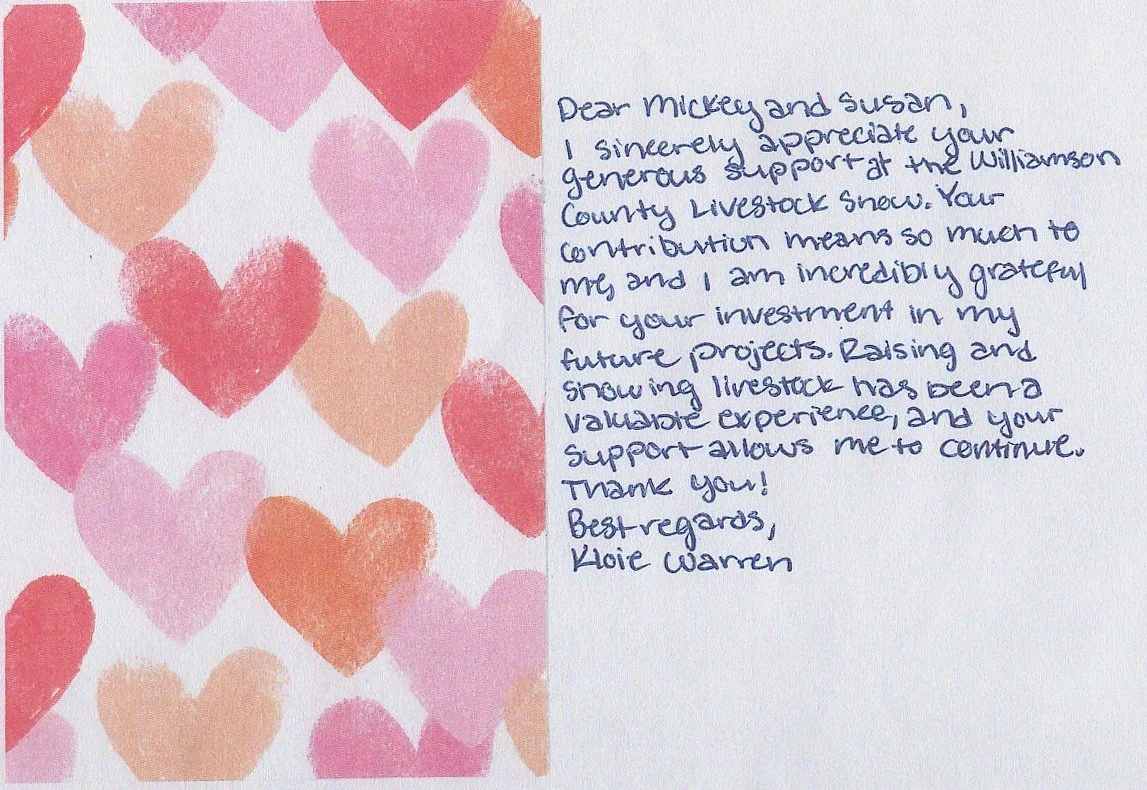 Dear Mickey and Susan,
I sincerely appreciate your
generous support at the Williamson
County Livestock Show. Your
contribution means so much to
me, and I am incredibly grateful
for your investment in my
future projects. Raising and
showing livestock has been a
valuable experience, and your
support allows me to continue.
Thank you!
Best regards,
Kloie Warren